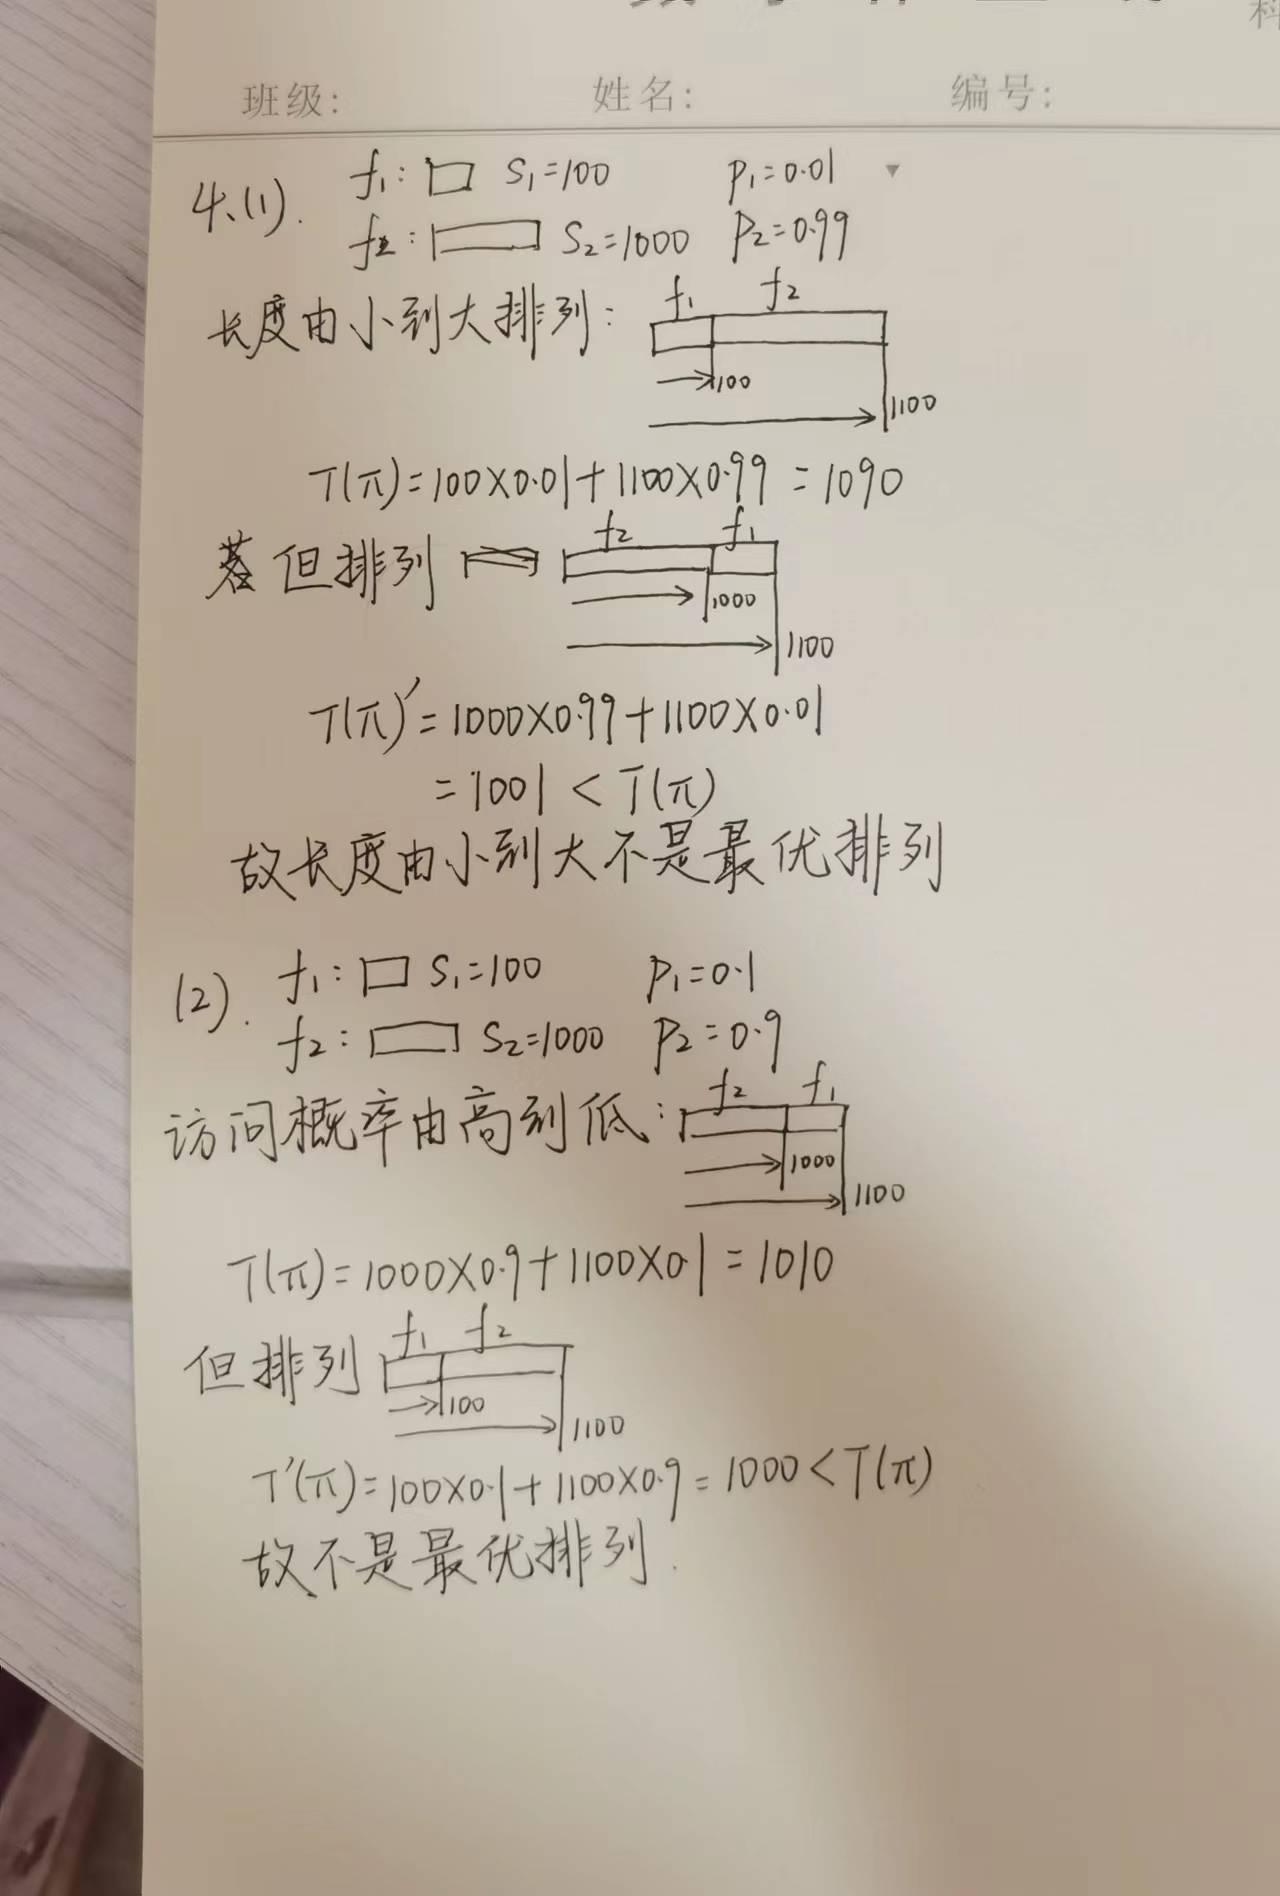 班级: 姓名: 编号:
4.(1). f₁: S₁=100 P₁=0.01
f₂: S₂=1000 P₂=0.99
长度由小到大排列: f₁ f₂
100
1100
T(π)=100×0.01+1100×0.99=1090
但排列 f₂ f₁
1000
1100
T(π)′=1000×0.99+1100×0.01
=1001<T(π)
故长度由小到大不是最优排列
(2). f₁: S₁=100 P₁=0.1
f₂: S₂=1000 P₂=0.9
访问概率由高到低: f₂ f₁
1000
1100
T(π)=1000×0.9+1100×0.1=1010
但排列 f₁ f₂
100
1100
T′(π)=100×0.1+1100×0.9=1000<T(π)
故不是最优排列.